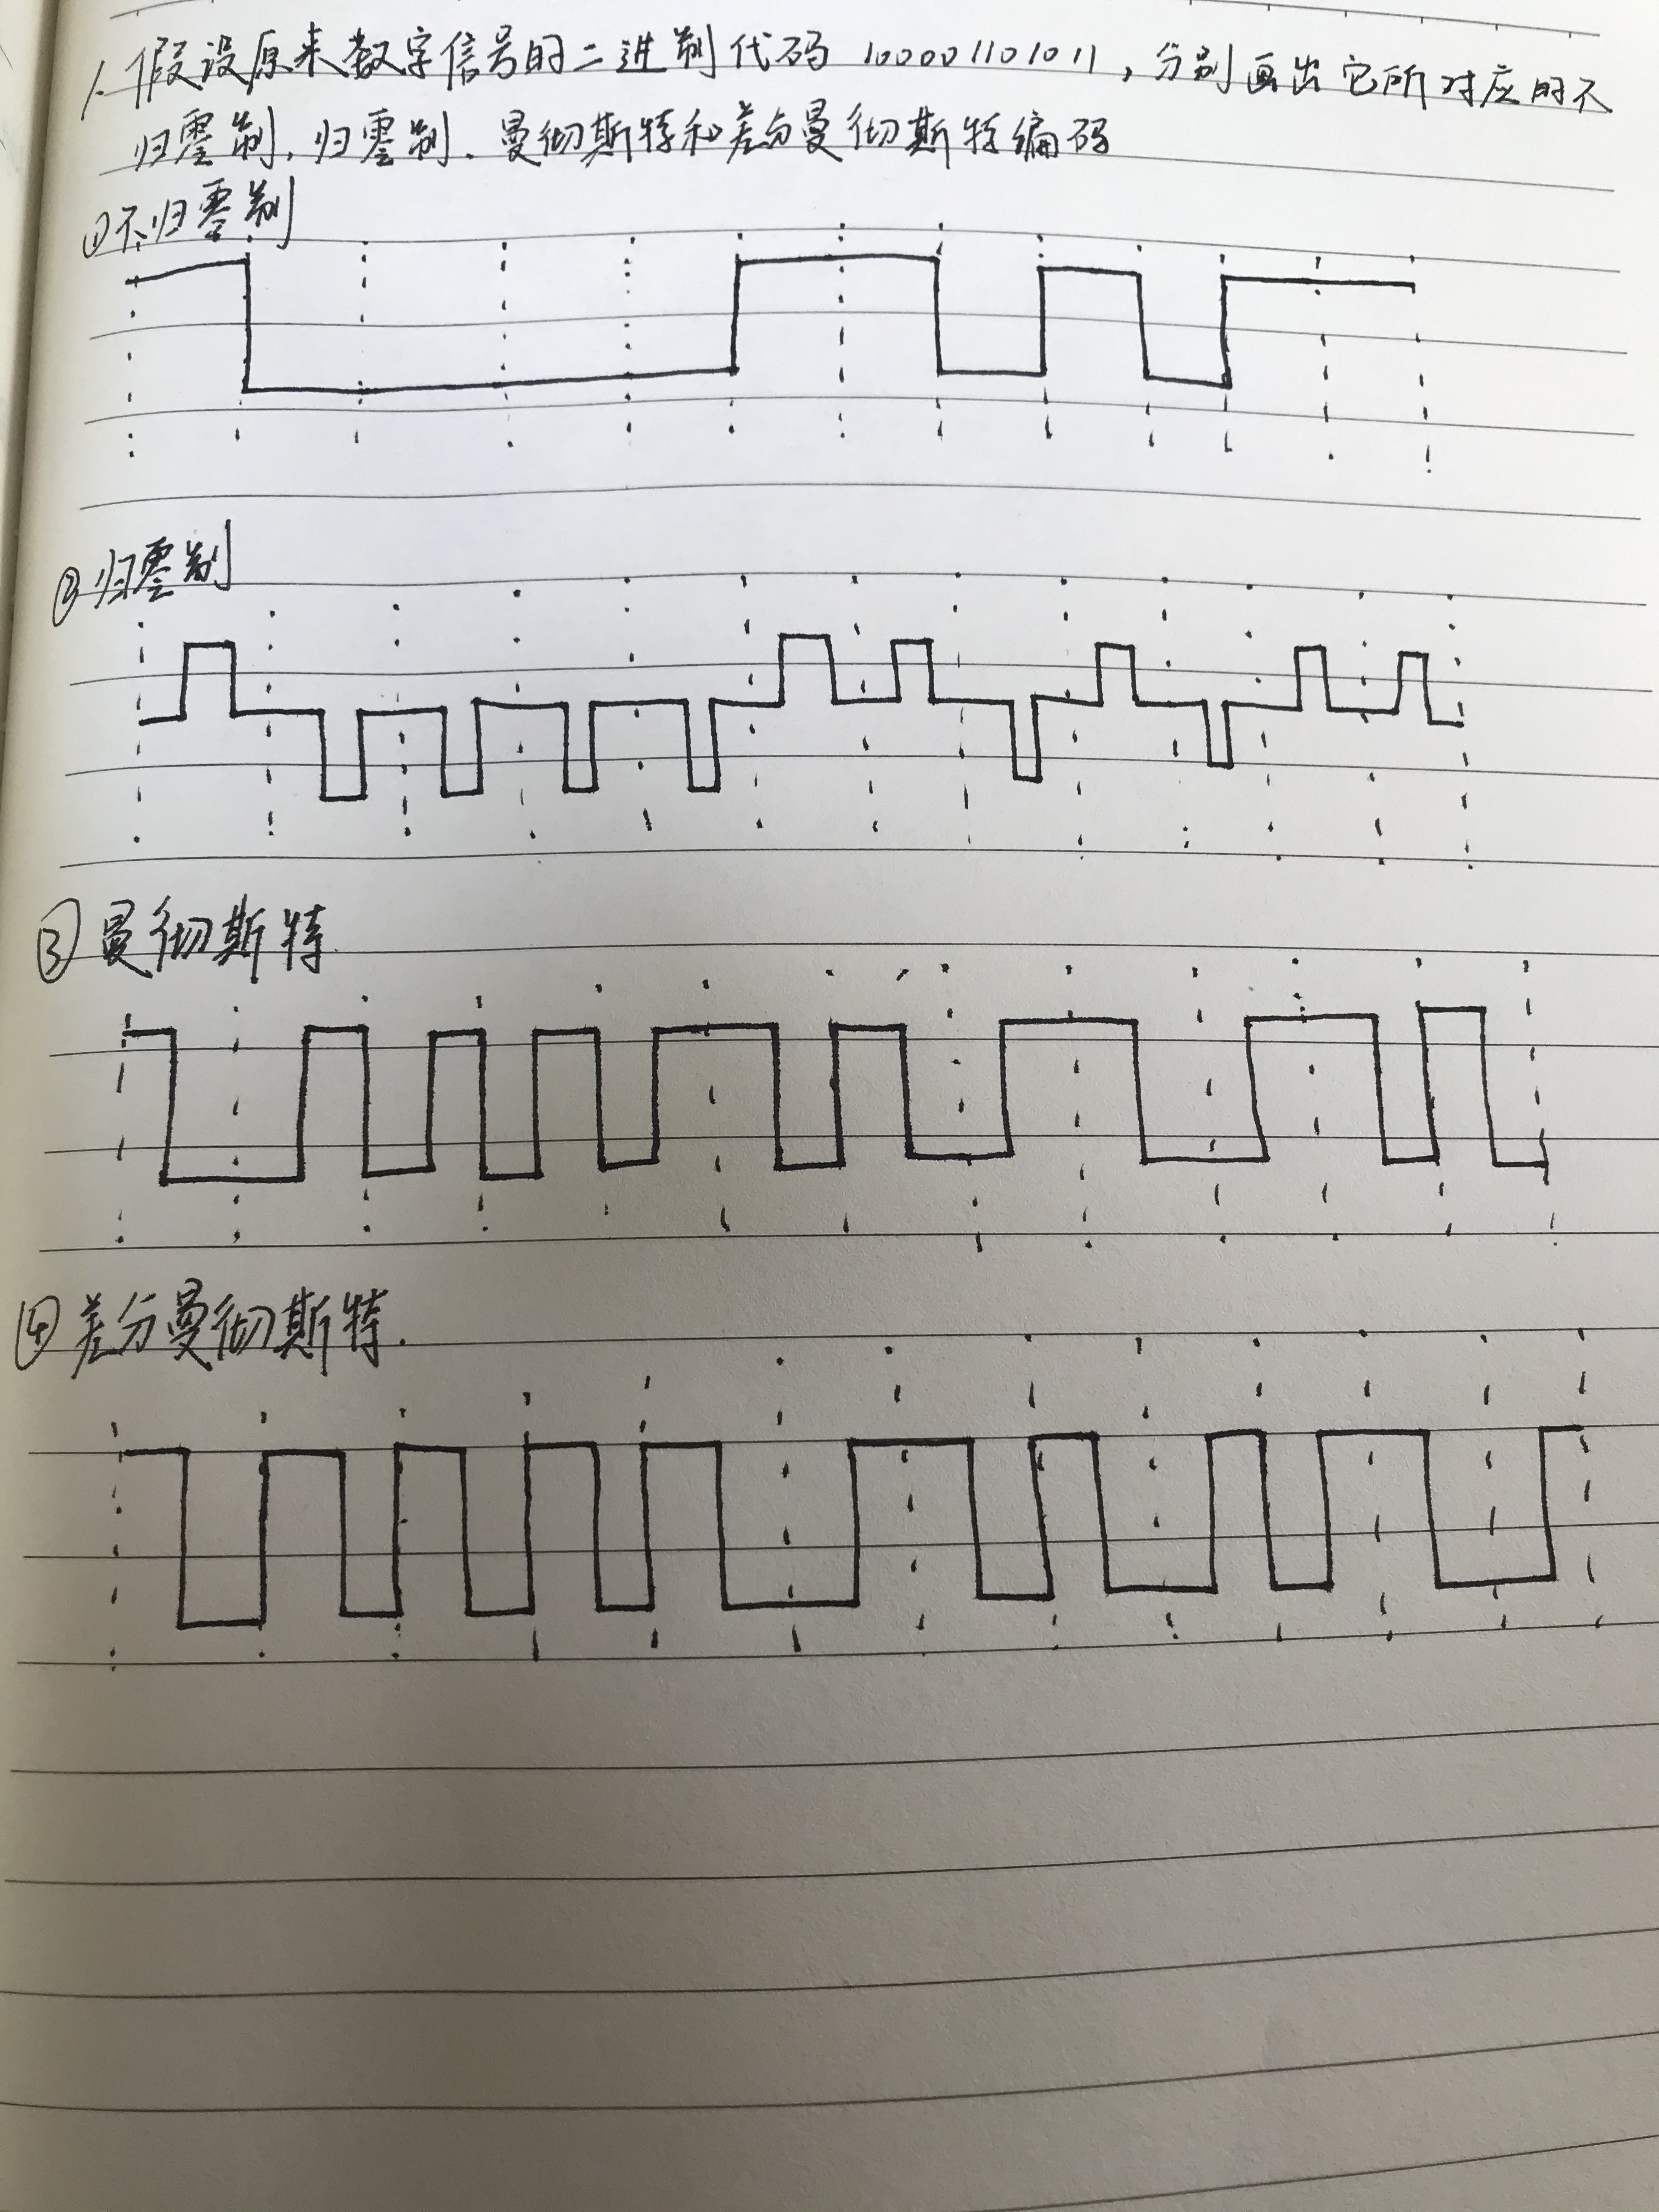 1.假设原来数字信号的二进制代码 100001101011,分别画出它所对应的不
归零制、归零制、曼彻斯特和差分曼彻斯特编码
①不归零制
②归零制
③曼彻斯特
④差分曼彻斯特.